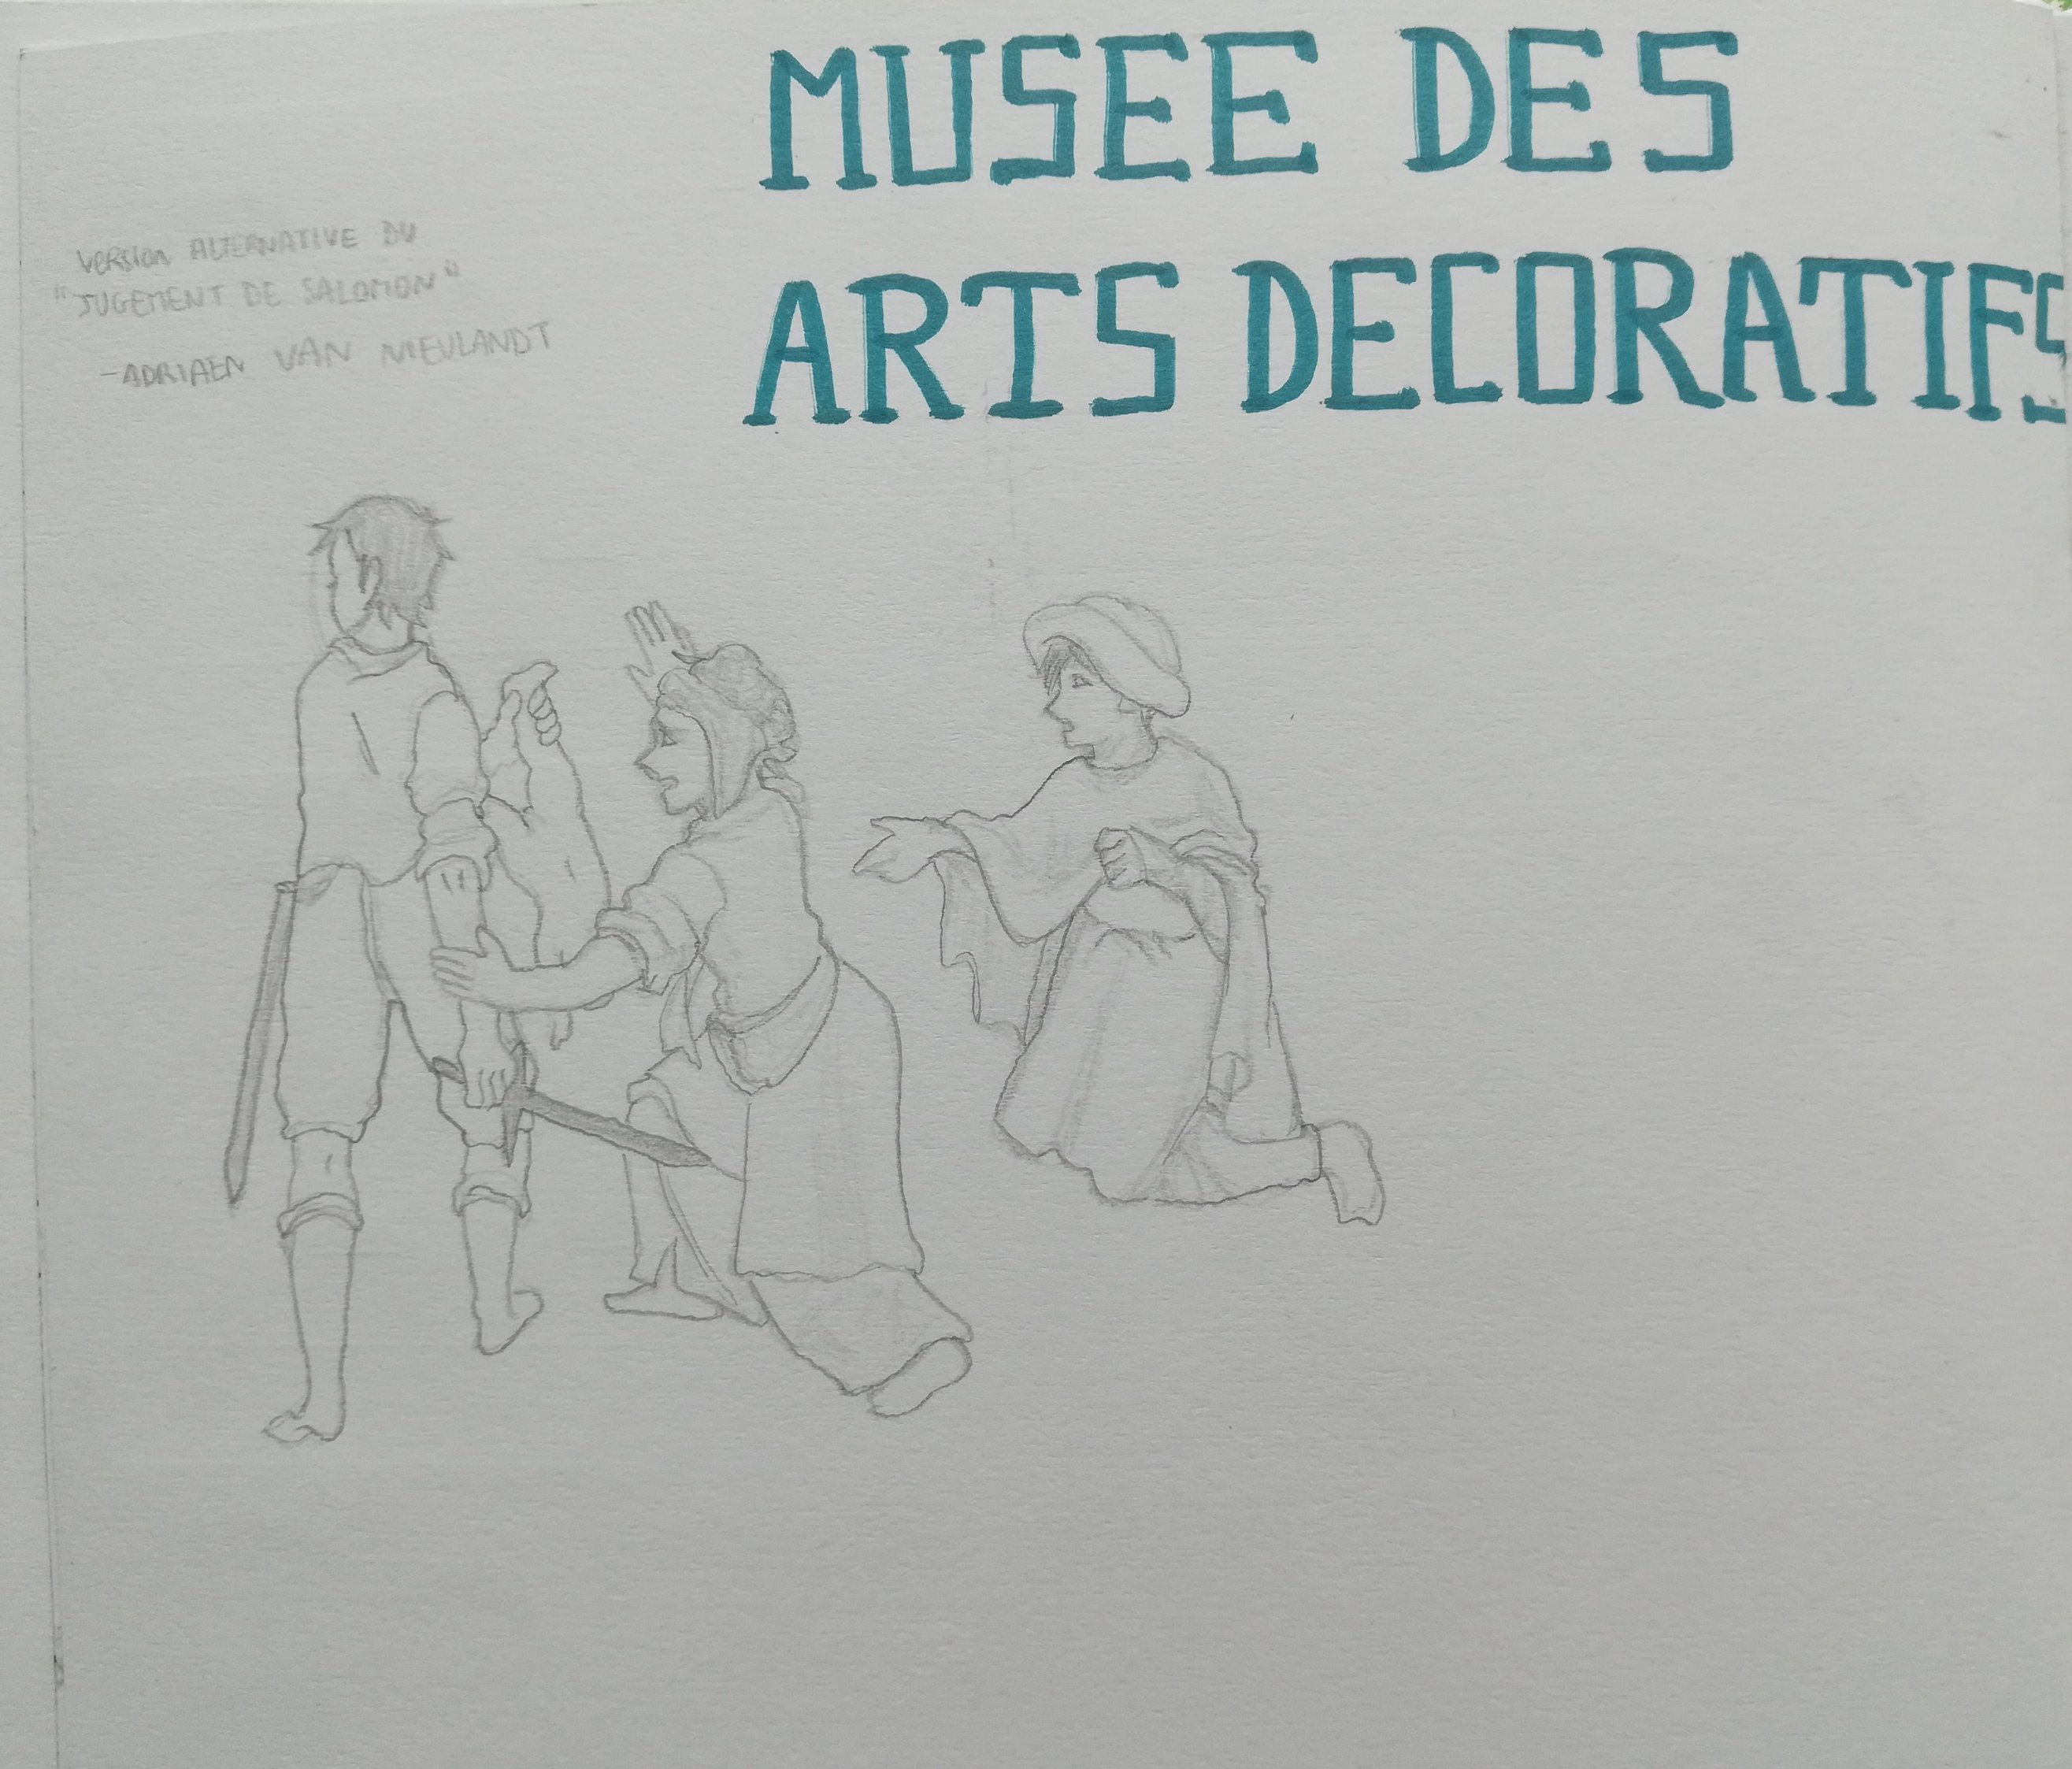 MUSEE DES
ARTS DECORATIFS
VERSION ALTERNATIVE DU
"JUGEMENT DE SALOMON"
-ADRIAEN VAN NIEULANDT